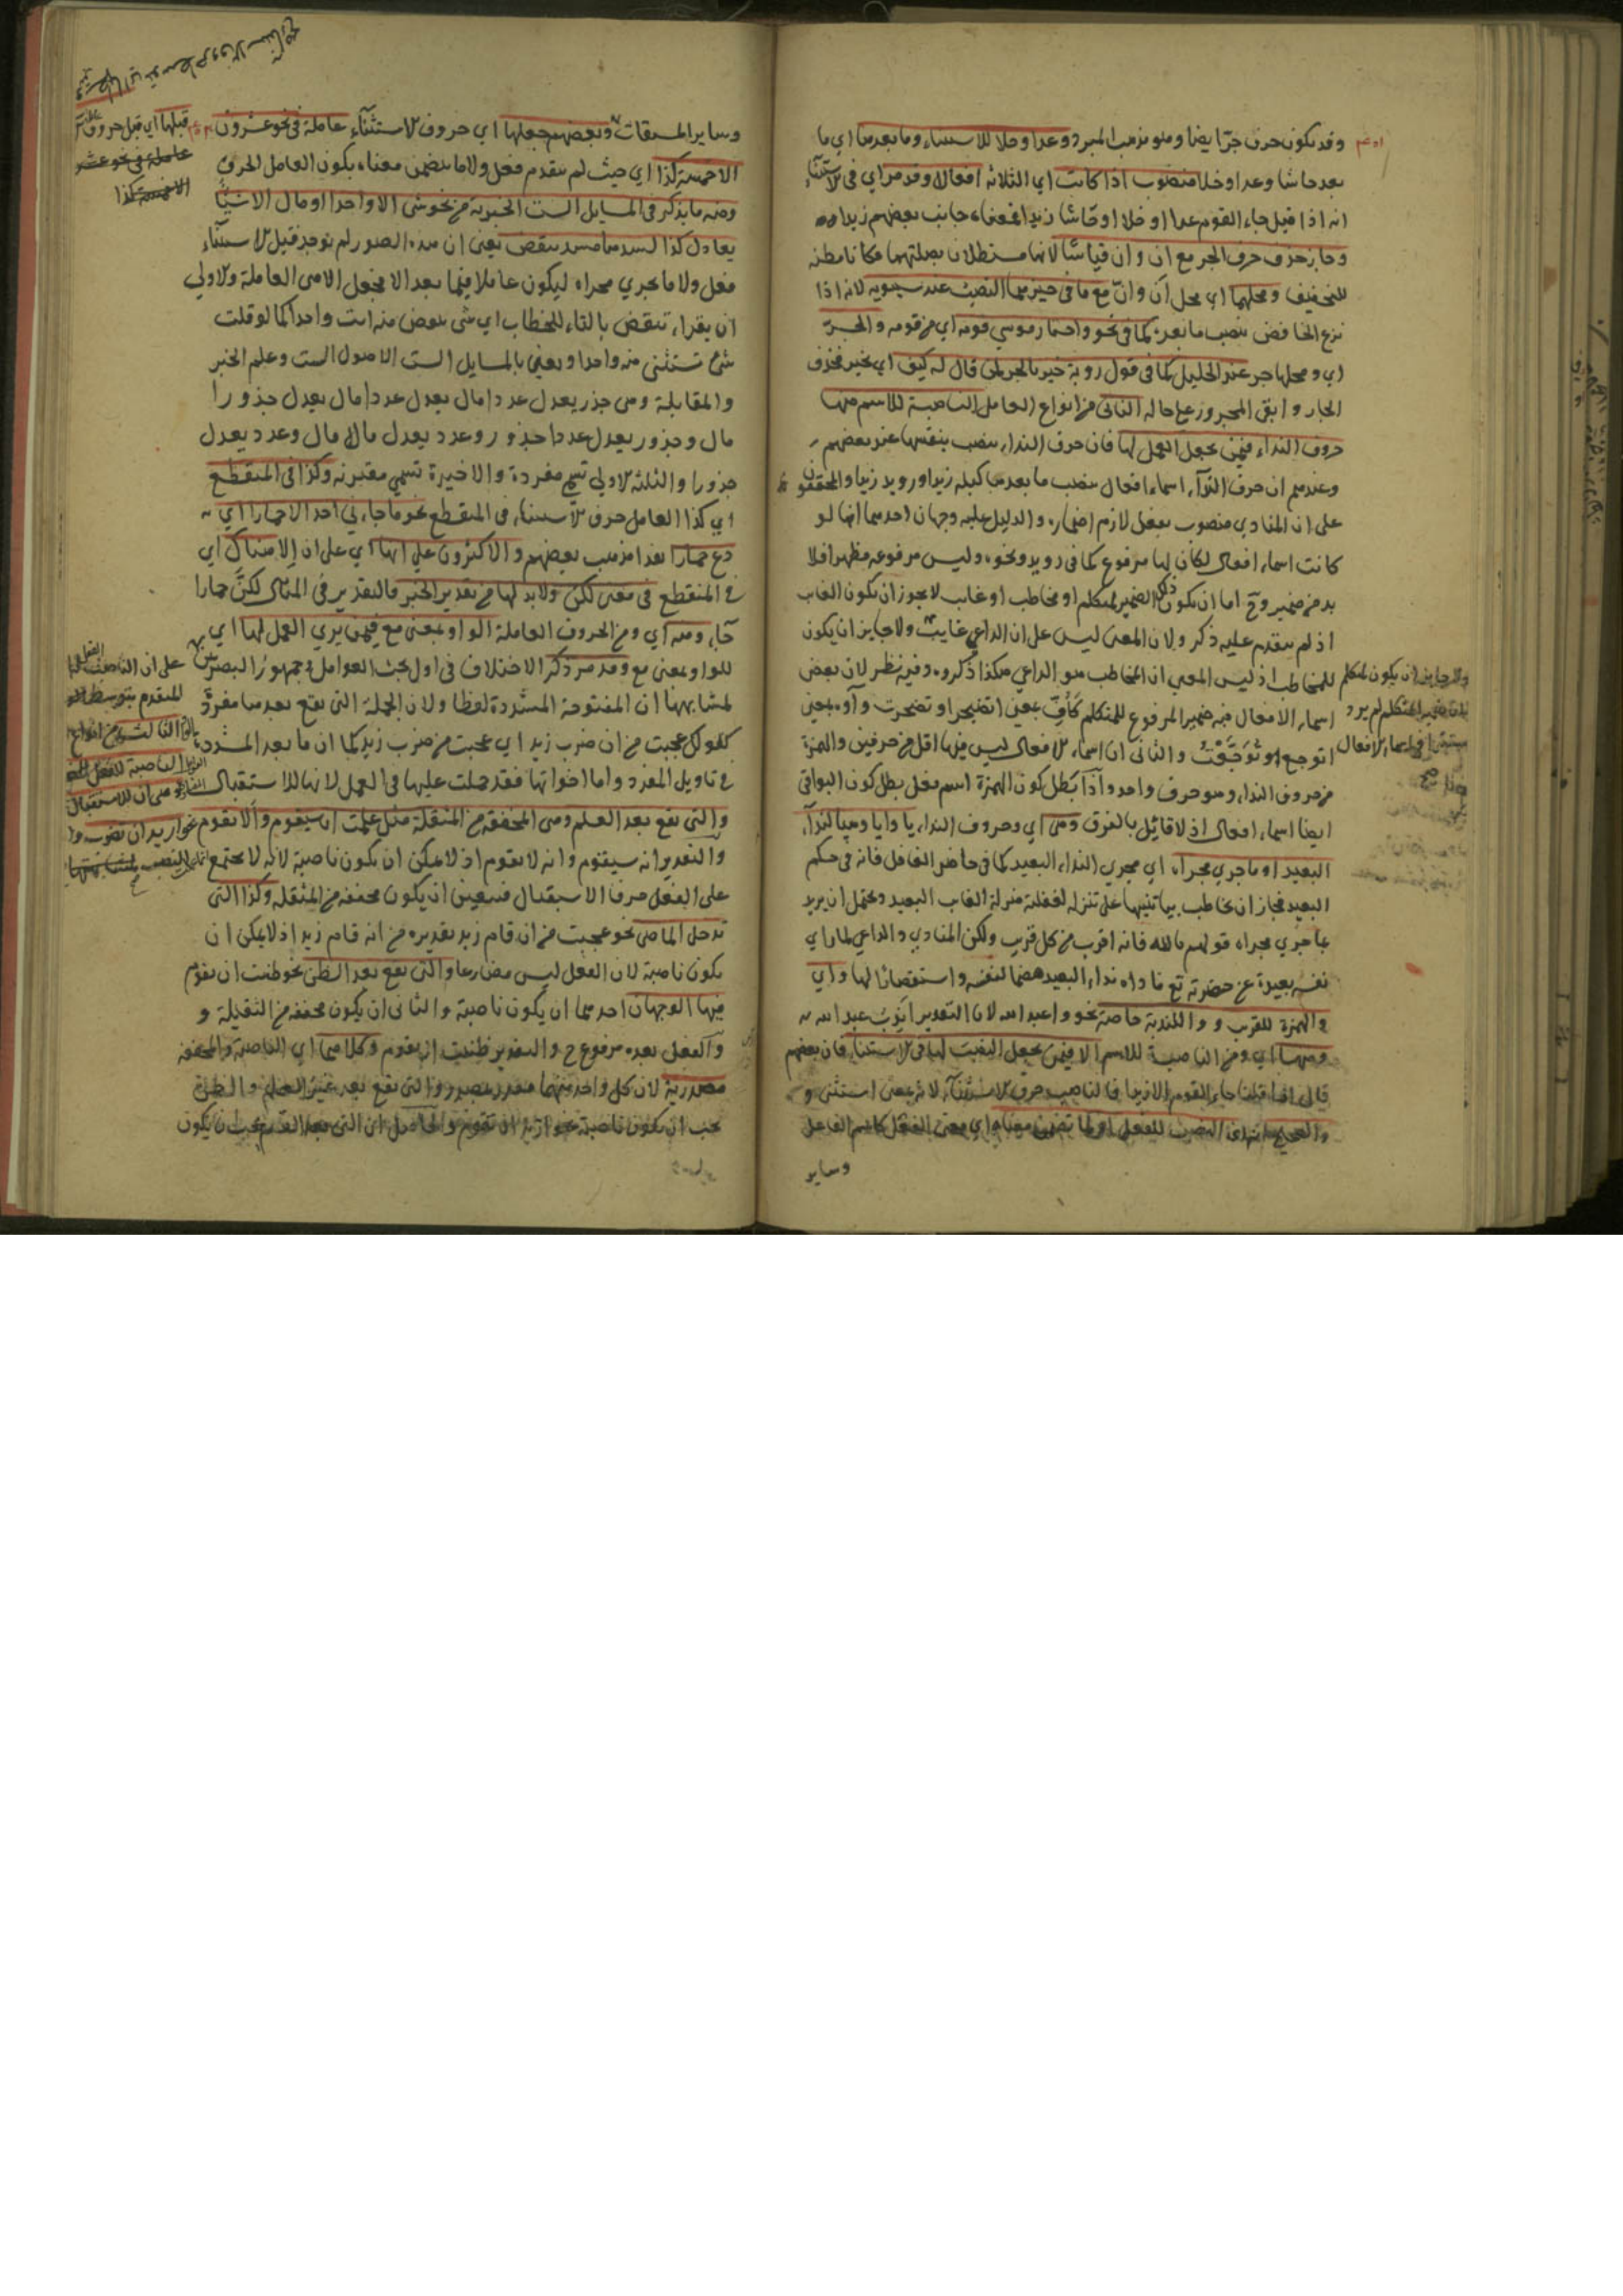 وقد يكون حرف جر ايضا وهو مذهب المبرد وعدا وخلا للاستثناء وما بعدها اي ما
بعد حاشا وعدا وخلا منصوب اذا كانت اي الثلاثة افعالا وقد مر اي في الاستثناء
انه اذا قيل جاء القوم عدا او خلا او حاشا زيدا فمعناه جانب بعضهم زيدا
وجاز حذف حرف الجر مع ان وان قياسا لانهما مستطلان بصلتهما فكانا مظنة
للتخفيف ومحلهما اي محل ان وان مع ما في حيزهما النصب عند سيبويه لانه اذا
نزع الخافض ينصب ما بعده كما في نحو واختار موسى قومه اي من قومه والجر
اي ومحلها جر عند الخليل كما في قول روبة خير بالجر لمن قال له كيف اي بخير فحذف
الجار وابقى المجرور على حاله الثاني من انواع العامل الناصبة للاسم منها
حروف النداء فيمن يجعل العمل لها فان حرف النداء ينصب بنفسها عند بعضهم
وعندهم ان حرف النداء اسماء افعال ينصب ما بعدها كبله زيدا ورويد زيدا والمحققون
على ان المنادي منصوب بفعل لازم اضماره والدليل عليه وجهان احدهما انها لو
كانت اسماء افعال لكان لها مرفوع كما في رويد ونحوه وليس مرفوعه مظهرا فلا
بد من ضمير وح اما ان يكون ذلك الضمير لمتكلم او مخاطب او غائب لا يجوز ان يكون الغائب
اذ لم يتقدم عليه ذكر ولان المعنى ليس على ان الداعي غائب ولا جايز ان يكون
للمخاطب اذ ليس المعنى ان المخاطب هو الداعي هكذا ذكروه وفيه نظر لان بعض
اسماء الافعال فيه ضمير المرفوع للمتكلم كأف بمعنى اتضجر او تضجرت وآوه بمعنى
اتوجع او توجعت والثاني ان اسماء الافعال ليس فيها اقل من حرفين والهمزة
من حروف النداء وهو حرف واحد واذا بطل كون الهمزة اسم فعل بطل كون البواقي
ايضا اسماء افعال اذ لا قائل بالفرق وهي اي وحروف النداء يا وايا وهيا لنداء
البعيد او ما جري مجراه اي مجرى النداء البعيد كما في حاضر الغافل فانه في حكم
البعيد فجاز ان يخاطب بها تنبيها على تنزله لغفلته منزلة الغائب البعيد ويحتمل ان يريد
بما جري مجراه قولهم يا الله فانه اقرب من كل قريب ولكن المنادي والداعي لما راي
نفسه بعيدة عن حضرته تع ناداه نداء البعيد هضما لنفسه واستقصارا لها واي
والهمزة للقرب و وا للندبة خاصة نحو وا عبد الله لان التقدير اندب عبد الله
ومنها اي ومن الناصبة للاسم الا فيمن يجعل النصب لها في الاستثناء فان بعضهم
قال اذا قلنا جاء القوم الا زيدا فالناصب حرف الاستثناء لانه بمعنى استثنى و
والصحيح النصب للفعل او لما تضمن معناه اي معنى الفعل كاسم الفاعل
وساير
وساير المشتقات وبعضهم جعلها اي حروف الاستثناء عاملة في نحو عشرون
الا خمسة كذا اي حيث لم يتقدم فعل ولا ما يتضمن معناه يكون العامل الحرف
ومنه ما يذكر في المسايل الست الخبرية من نحو شي الا واحدا او مال الا شيئا
يعادل كذا ليسد مسده ينقض يعني ان هذه الصور لم يوجد قبل الاستثناء
فعل ولا ما يجري مجراه ليكون عاملا فيما بعد الا فجعل الا هي العاملة والاولي
ان يقرا تنقض بالتاء للخطاب اي شي ينقض منه انت واحدا كما لو قلت
شي تستثنى منه واحدا ويعني بالمسايل الست الاصول الست وعلم الجبر
والمقابلة وهي جذر يعدل عددا مال يعدل عددا مال يعدل جذورا
مال وجذور يعدل عددا جذور وعدد يعدل مالا مال وعدد يعدل
جذورا والثلثة الاولي تسمي مفردة والاخيرة تسمي مقترنة وكذا في المنقطع
اي كذا العامل حرف الاستثناء في المنقطع نحو ما جاءني احد الا حمارا اي
دع حمارا هذا مذهب بعضهم والاكثرون على انها اي على ان الا هناك اي
في المنقطع في معنى لكن ولا بد لها من تقدير الخبر فالتقدير في المثال لكن حمارا
جاء ومنه اي ومن الحروف العاملة الواو بمعنى مع فيمن يري العمل لها اي
للواو بمعنى مع وقد مر ذكر الاختلاف في اول بحث العوامل جمهور البصريين
لمشابهها ان المفتوحة المشددة لفظا ولان الجملة التي تقع بعدها مفردة
كقولك عجبت من ان ضرب زيد اي عجبت من ضرب زيد كما ان ما بعد المشددة
في تاويل المفرد واما اخواتها فقد حملت عليها في العمل لانها للاستقبال
والتي تقع بعد العلم وهي المخففة من المثقلة مثل علمت ان سيقوم والا يقوم
والتقدير انه سيقوم وانه لا يقوم اذ لا يمكن ان يكون ناصبة لانه لا يجتمع
على الفعل حرفا الاستقبال فتعين ان يكون مخففة من المثقلة وكذا التي
تدخل الماضي نحو عجبت من ان قام زيد تقديره من انه قام زيد اذ لا يمكن ان
يكون ناصبة لان الفعل ليس مضارعا والتي تقع بعد الظن نحو ظننت ان يقوم
فيها الوجهان احدهما ان يكون ناصبة والثاني ان يكون مخففة من الثقيلة و
والفعل بعده مرفوع ح والتقدير ظننت انه يقوم وكلاهما اي الناصبة والمخففة
مصدرية لان كل واحد منهما مقدر بمصدر والتي تقع بعد غير العلم والظن
يجب ان يكون ناصبة نحو اريد ان تقوم والحاصل ان التي بعد العلم يجب ان يكون
قبلها اي قبل حروف
عاملة في نحو عشرون
الا خمسة كذا
على ان الناصب الفعل
للمتقدم بتوسط
الثالث من انواع
الناصبة للفعل
وهي ان للاستقبال
نحو اريد ان تضرب